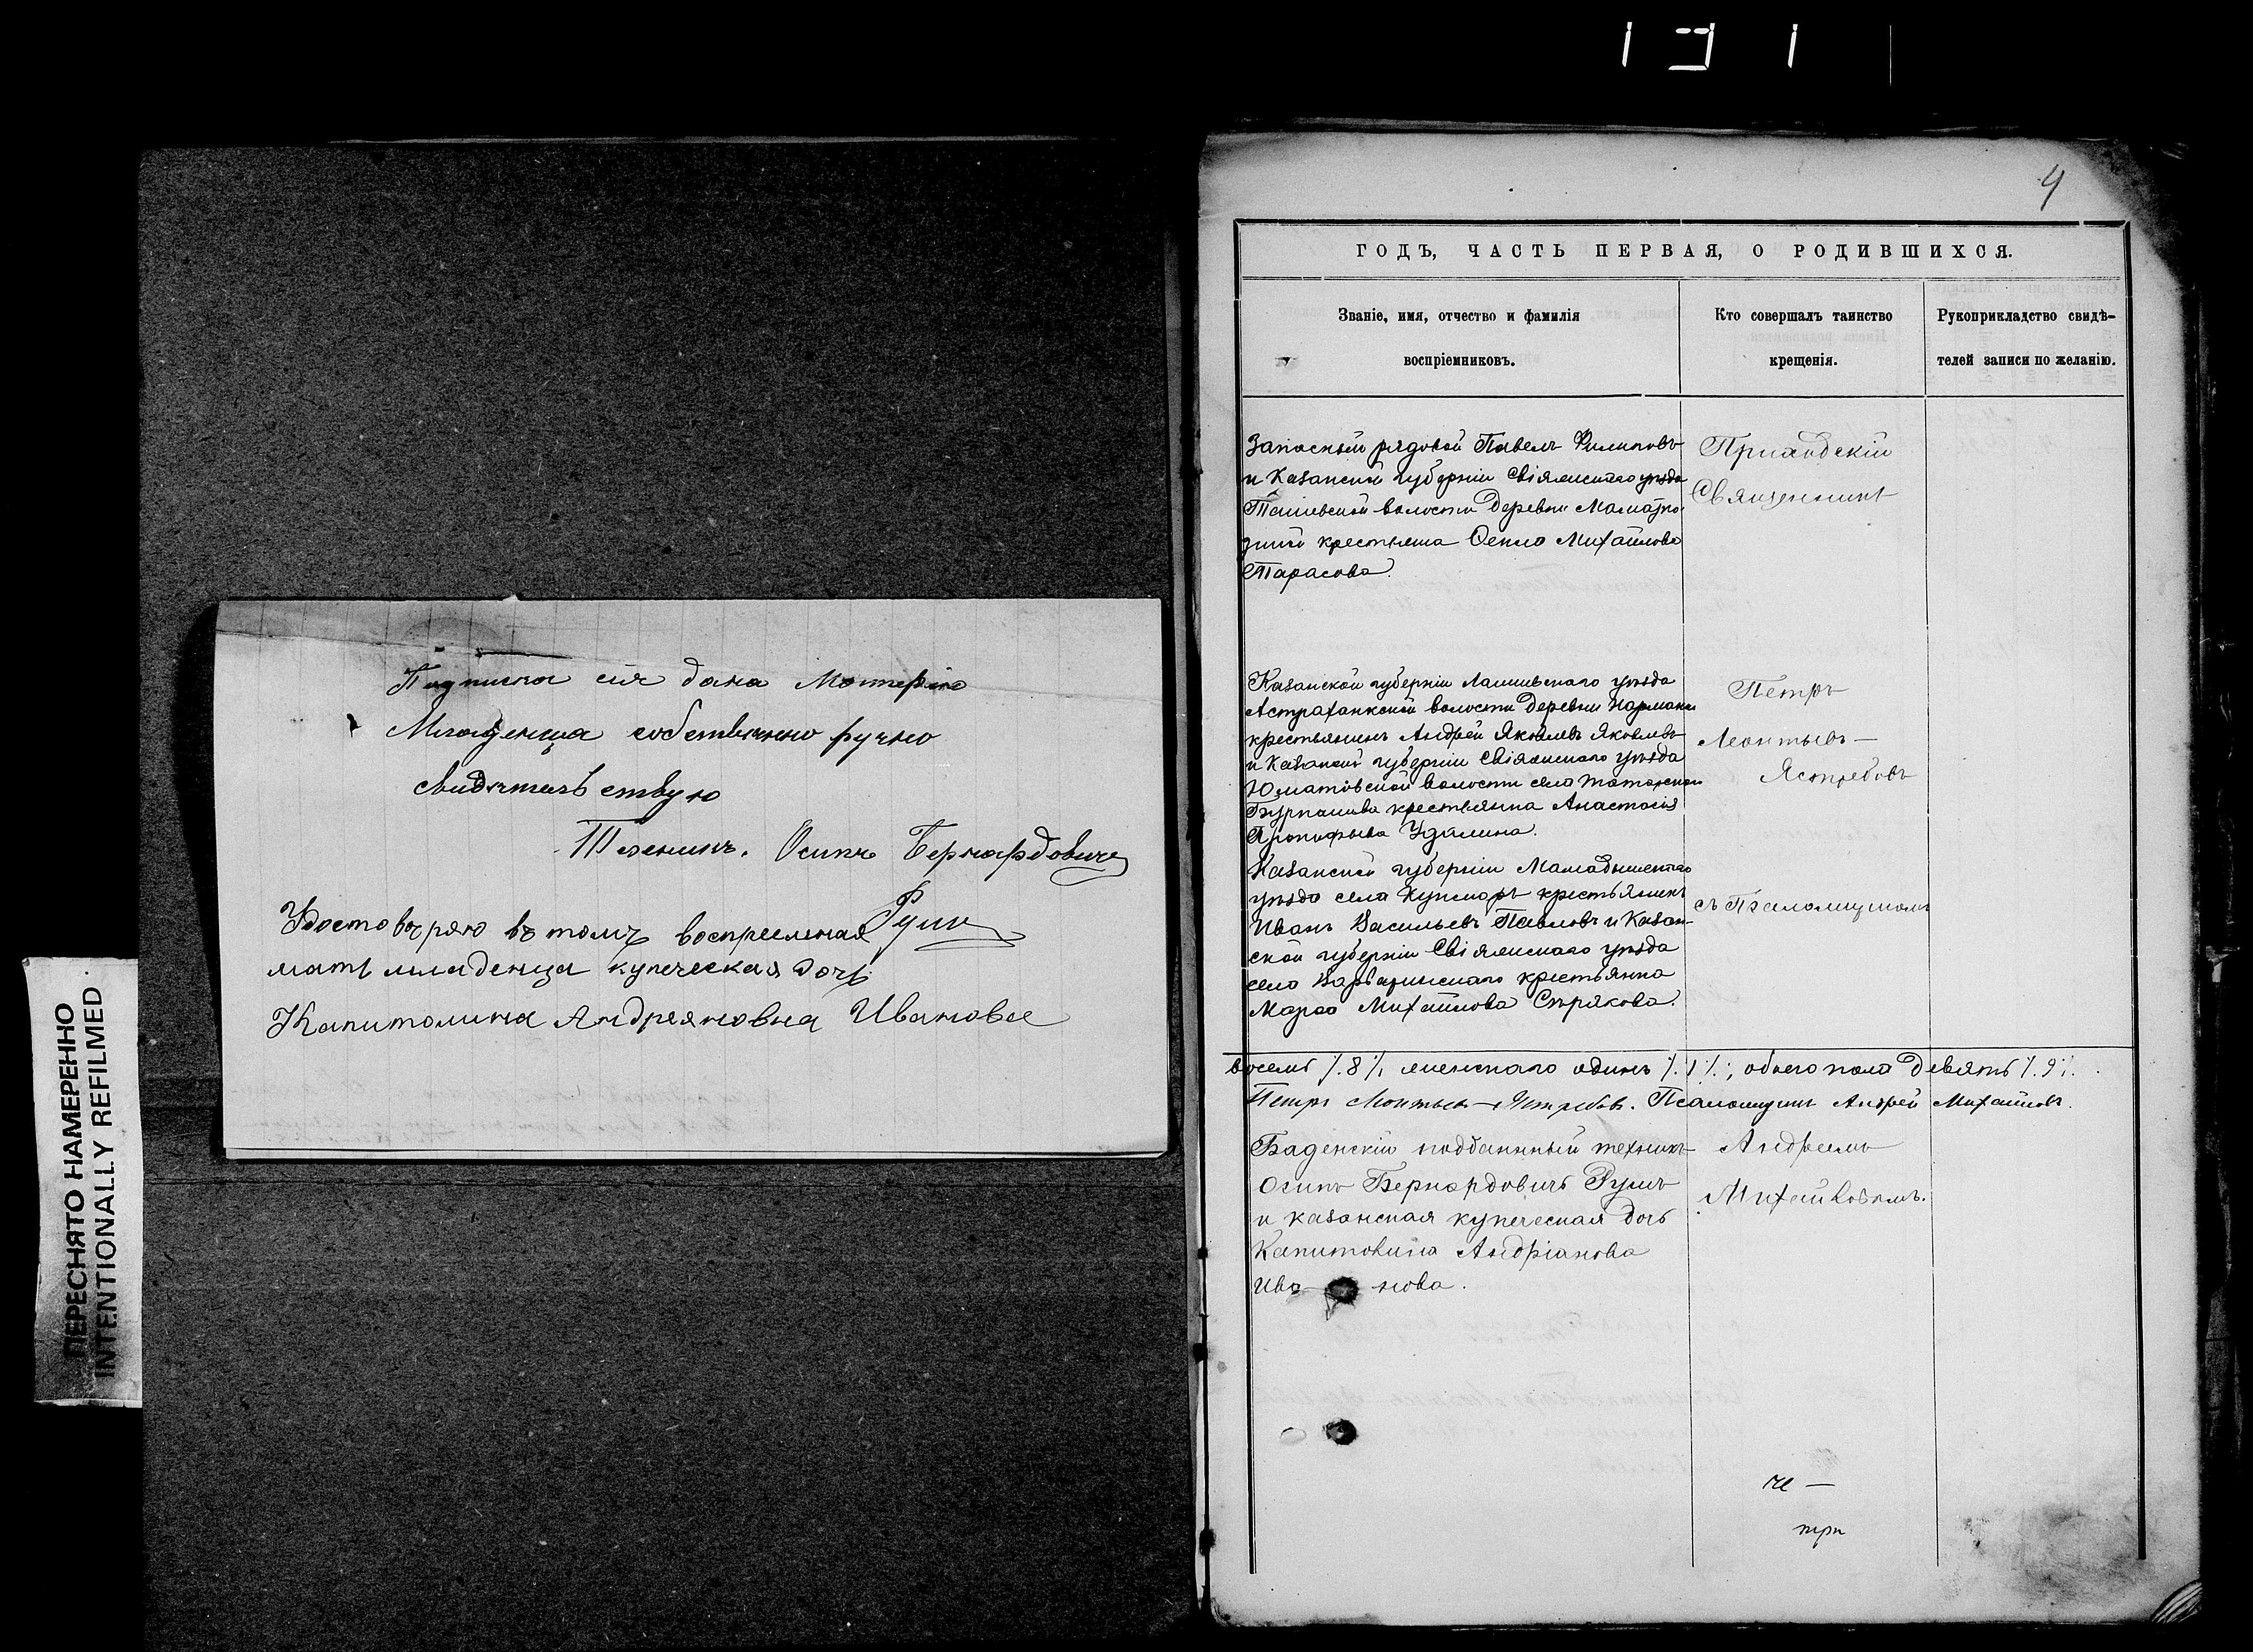 ПЕРЕСНЯТО НАМЕРЕННО
INTENTIONALLY REFILMED
Подписка сія дана
Младенца собственно ручно
свидѣтельствую
Техникъ. Осипъ Бернардовичъ
Румъ
Удостовѣряю въ томъ воспреемная
мать младенца купеческая дочь
Капитолина Андреяновна Иванова
4
ГОДЪ, ЧАСТЬ ПЕРВАЯ, О РОДИВШИХСЯ.
Званіе, имя, отчество и фамилія
воспріемниковъ.
Кто совершалъ таинство
крещенія.
Рукоприкладство свидѣ-
телей записи по желанію.
Запасный рядовой Павелъ Филиповъ
и Казанской губерніи Свіяжскаго уѣзда
волости деревни
крестьянка Михайлова
Тарасова.
Приходскій
Священникъ
Казанской губерніи Лаишевскаго уѣзда
Астраханской волости деревни
крестьянинъ Андрей Яковлевъ Яковлевъ
и Казанской губерніи Свіяжскаго уѣзда
волости села Татарскаго
Бурнашева крестьянка Анастасія
Прокофьева Удалина.
Петръ
Леонтьевъ —
Ястребовъ
Казанской губерніи Мамадышскаго
уѣзда села крестьянинъ
Иванъ Васильевъ Павловъ и Казан-
ской губерніи Свіяжскаго уѣзда
села крестьянка
Михайлова
съ Псаломщикомъ
восемь /.8/., женскаго одинъ /.1/., обоего пола девять /.9/.
Петръ Леонтьевъ Ястребовъ. Псаломщикъ Андрей Михайловъ.
Баденскій подданный техникъ
Осипъ Бернардовичъ Румъ
и казанская купеческая дочь
Капитолина Андріанова
Ива- нова.
Андреемъ
Михайловымъ.
че —
три